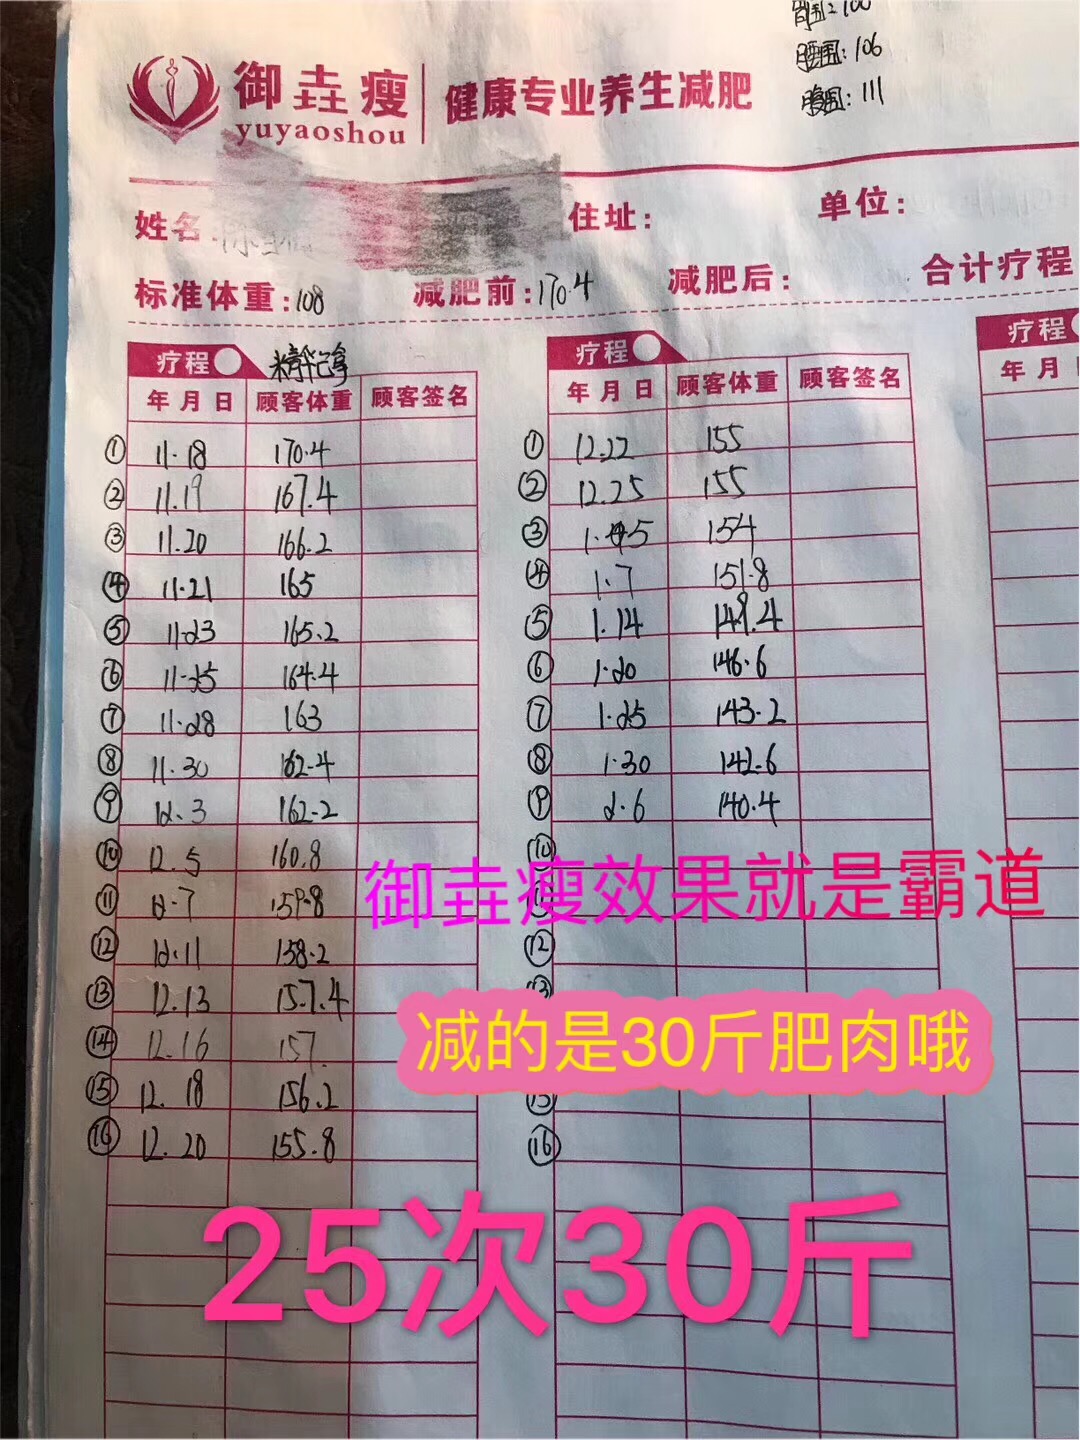 胃围:100
腰围:106
腹围:111
御垚瘦 健康专业养生减肥
yuyaoshou
姓名: 住址: 单位:
标准体重:108 减肥前:170.4 减肥后: 合计疗程
疗程 精华已拿
年月日 顾客体重 顾客签名
① 11.18 170.4
② 11.19 167.4
③ 11.20 166.2
④ 11.21 165
⑤ 11.23 165.2
⑥ 11.25 164.4
⑦ 11.28 163
⑧ 11.30 162.4
⑨ 12.3 162.2
⑩ 12.5 160.8
⑪ 12.7 159.8
⑫ 12.11 158.2
⑬ 12.13 157.4
⑭ 12.16 157
⑮ 12.18 156.2
⑯ 12.20 155.8
疗程
年月日 顾客体重 顾客签名
① 12.22 155
② 12.25 155
③ 1.5 154
④ 1.7 151.8
⑤ 1.14 149.4
⑥ 1.20 146.6
⑦ 1.25 143.2
⑧ 1.30 142.6
⑨ 2.6 140.4
⑩
⑫
⑬
⑮
⑯
疗程
年月
御垚瘦效果就是霸道
减的是30斤肥肉哦
25次30斤